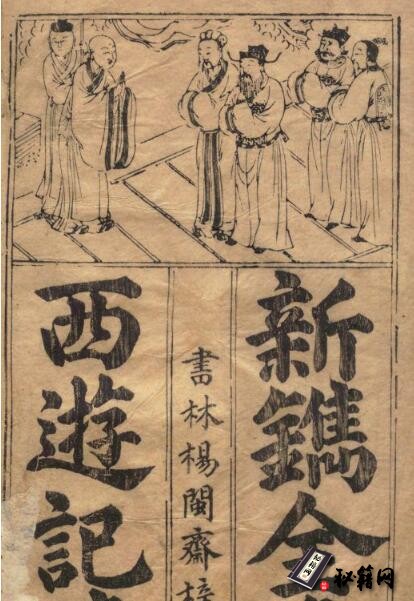 新鐫全
書林楊閩齋梓
西遊記
秘籍网